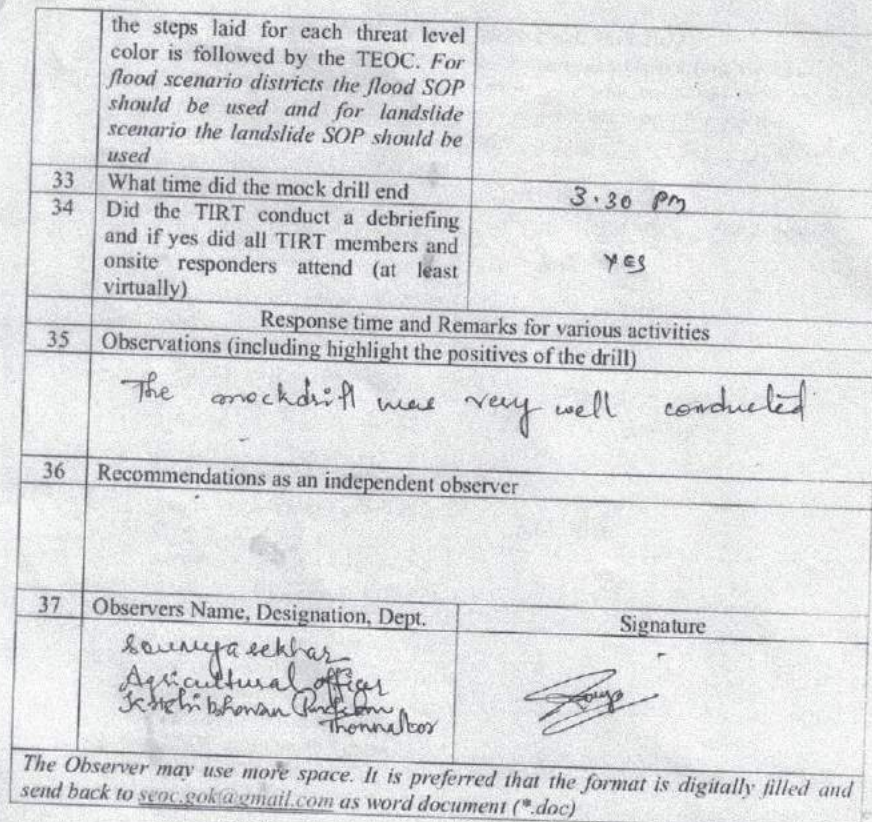 the steps laid for each threat level
color is followed by the TEOC. For
flood scenario districts the flood SOP
should be used and for landslide
scenario the landslide SOP should be
used
33 What time did the mock drill end 3.30 PM
34 Did the TIRT conduct a debriefing
and if yes did all TIRT members and
onsite responders attend (at least
virtually) YES
Response time and Remarks for various activities
35 Observations (including highlight the positives of the drill)
The mockdrill was very well conducted
36 Recommendations as an independent observer
37 Observers Name, Designation, Dept. Signature
Soumya sekhar
Agricultural officer
Krishibhavan
Thonnakkal
The Observer may use more space. It is preferred that the format is digitally filled and
send back to seoc.gok@gmail.com as word document (*.doc)